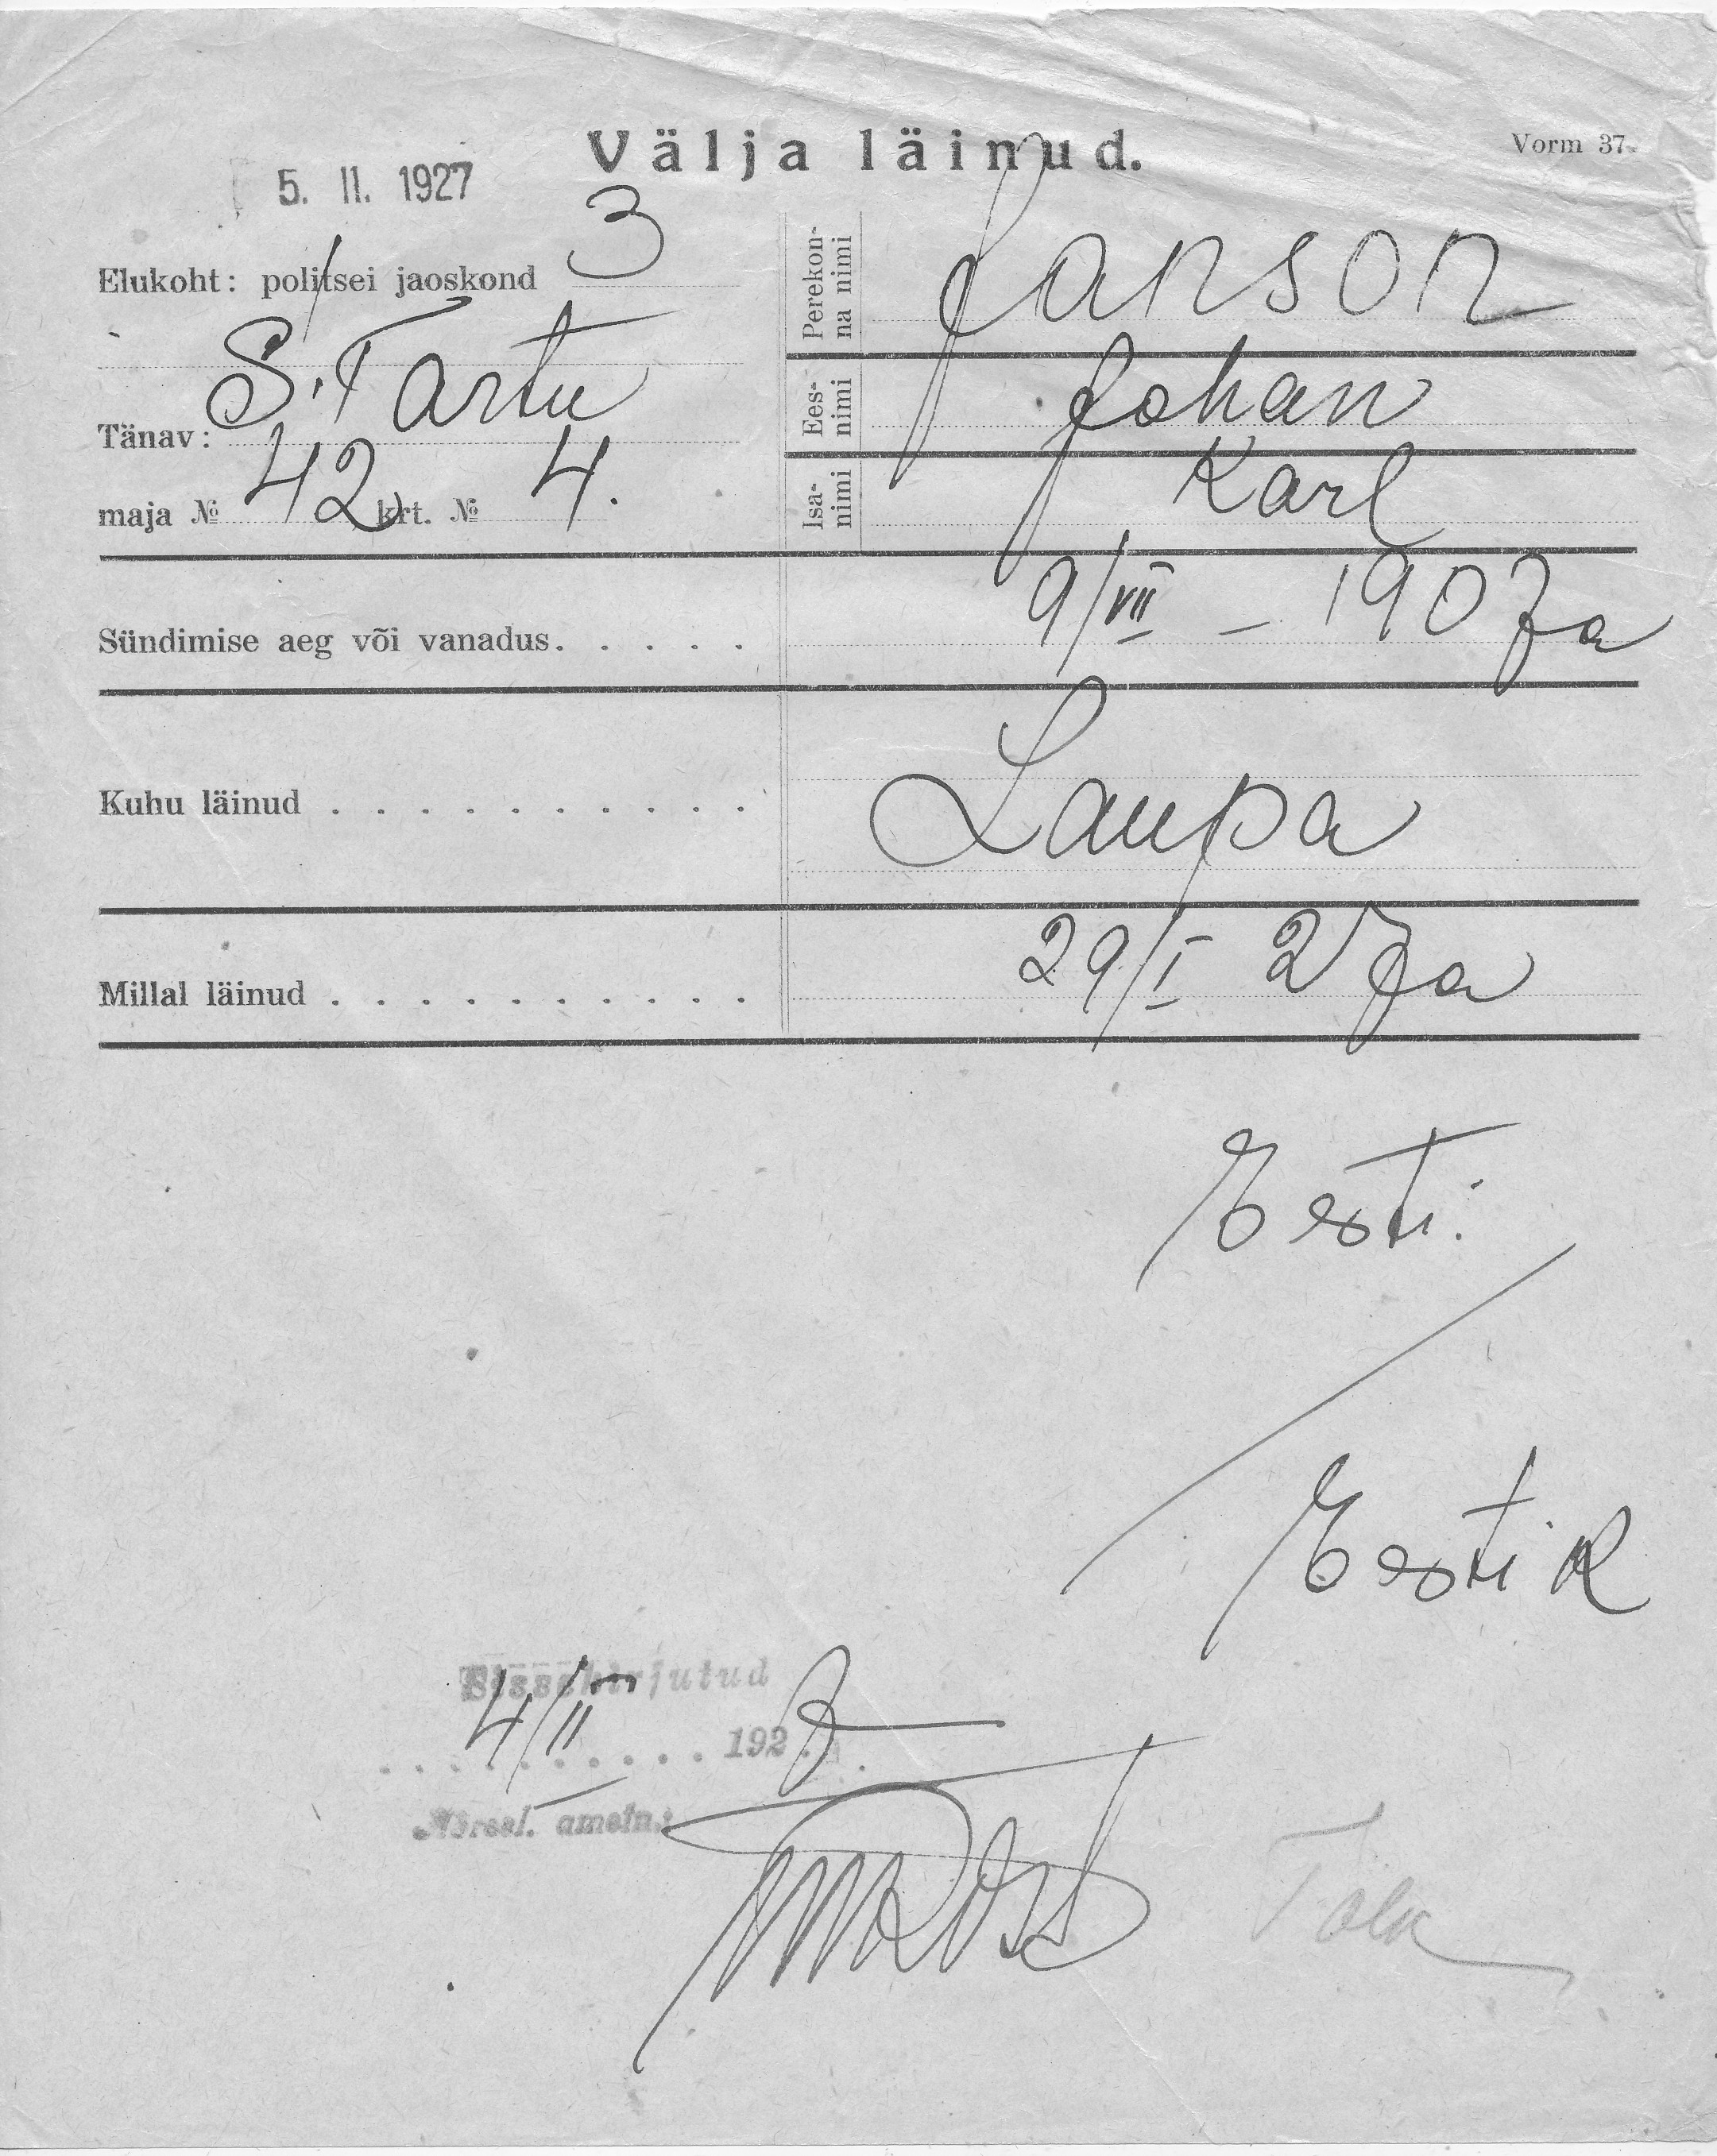 Välja läinud.
Vorm 37.
5. II. 1927
Elukoht: politsei jaoskond 3
S. Tartu
Tänav:
maja № 42 krt. № 4.
Perekonna nimi Janson
Eesnimi Johan
Isanimi Karl
Sündimise aeg või vanadus. . . . . 9/VII – 1907 a
Kuhu läinud . . . . . . . . . . Laupa
Millal läinud . . . . . . . . . . 29/I 27 a
Eesti.
Eesti k
Sissekirjutud
4/II 1927